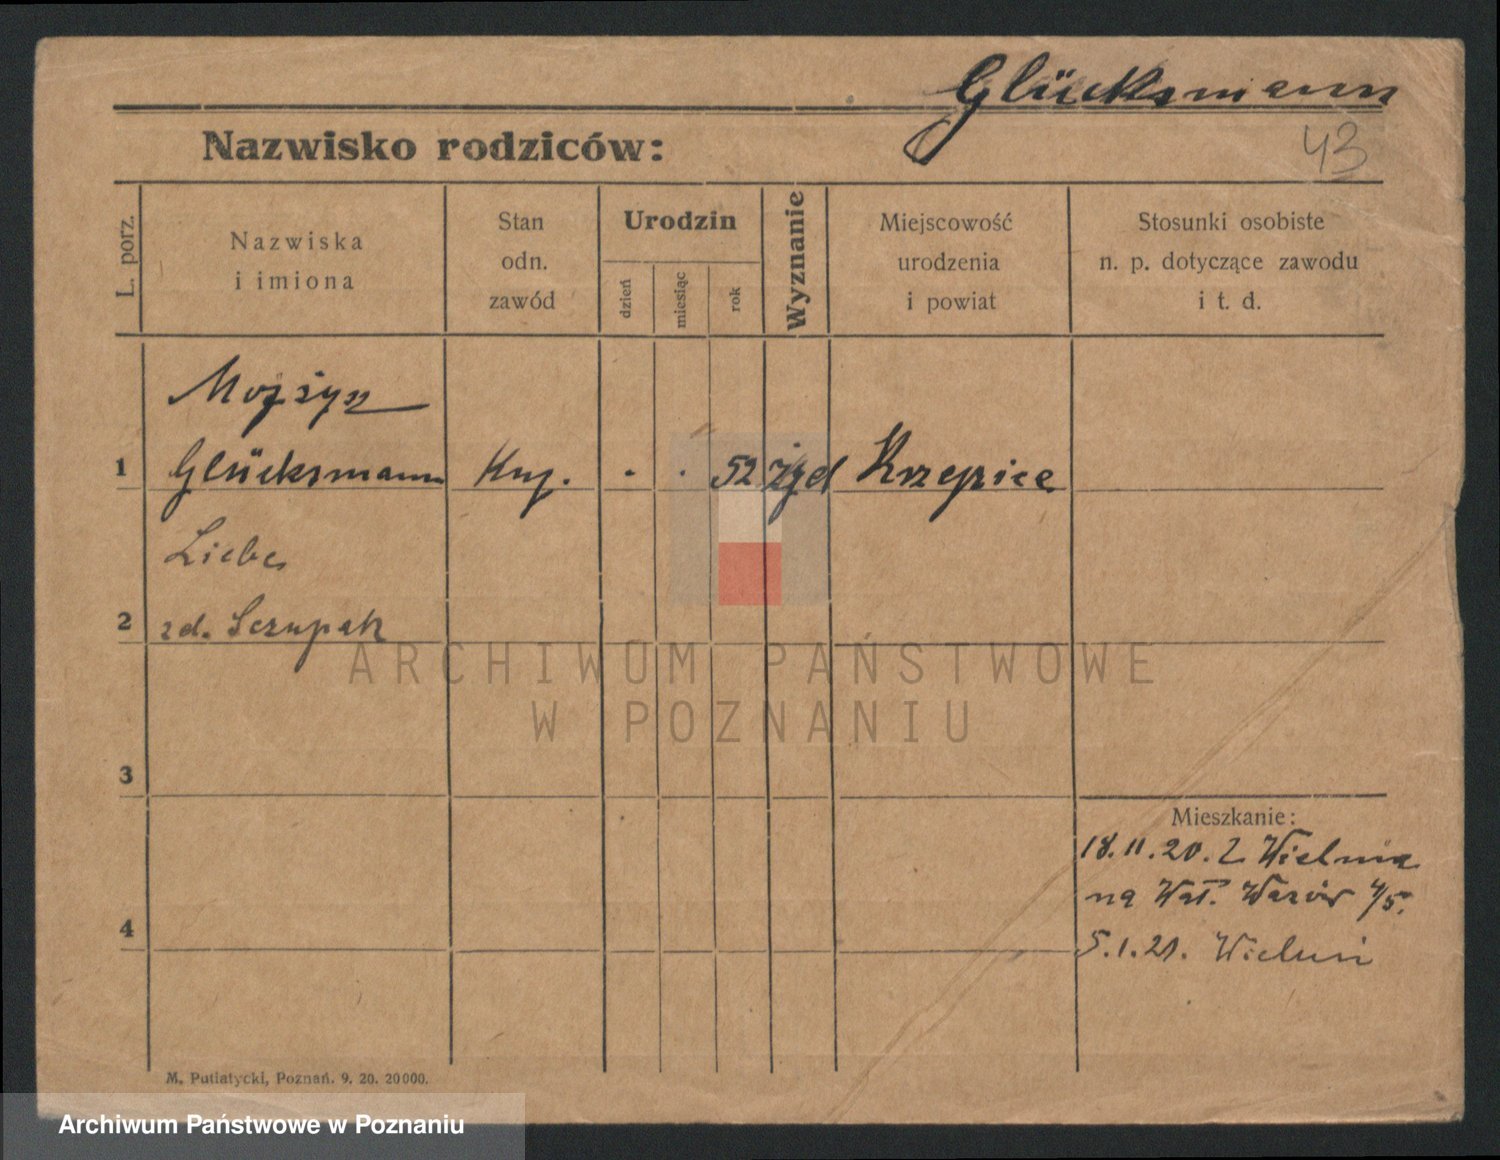 Glücksmann
43
Nazwisko rodziców:
L. porz.
Nazwiska
i imiona
Stan
odn.
zawód
Urodzin
dzień
miesiąc
rok
Wyznanie
Miejscowość
urodzenia
i powiat
Stosunki osobiste
n. p. dotyczące zawodu
i t. d.
Mojżysz
1 Glücksmann Kup. . . 52 żyd Krzepice
Liebe
2 zd. Sczupak
3
Mieszkanie:
18.11.20. Z Wielunia
na Wał. Wazów 4/5.
4
5.1.21. Wieluń
M. Putiatycki, Poznań. 9. 20. 20000.
ARCHIWUM PAŃSTWOWE
W POZNANIU
Archiwum Państwowe w Poznaniu